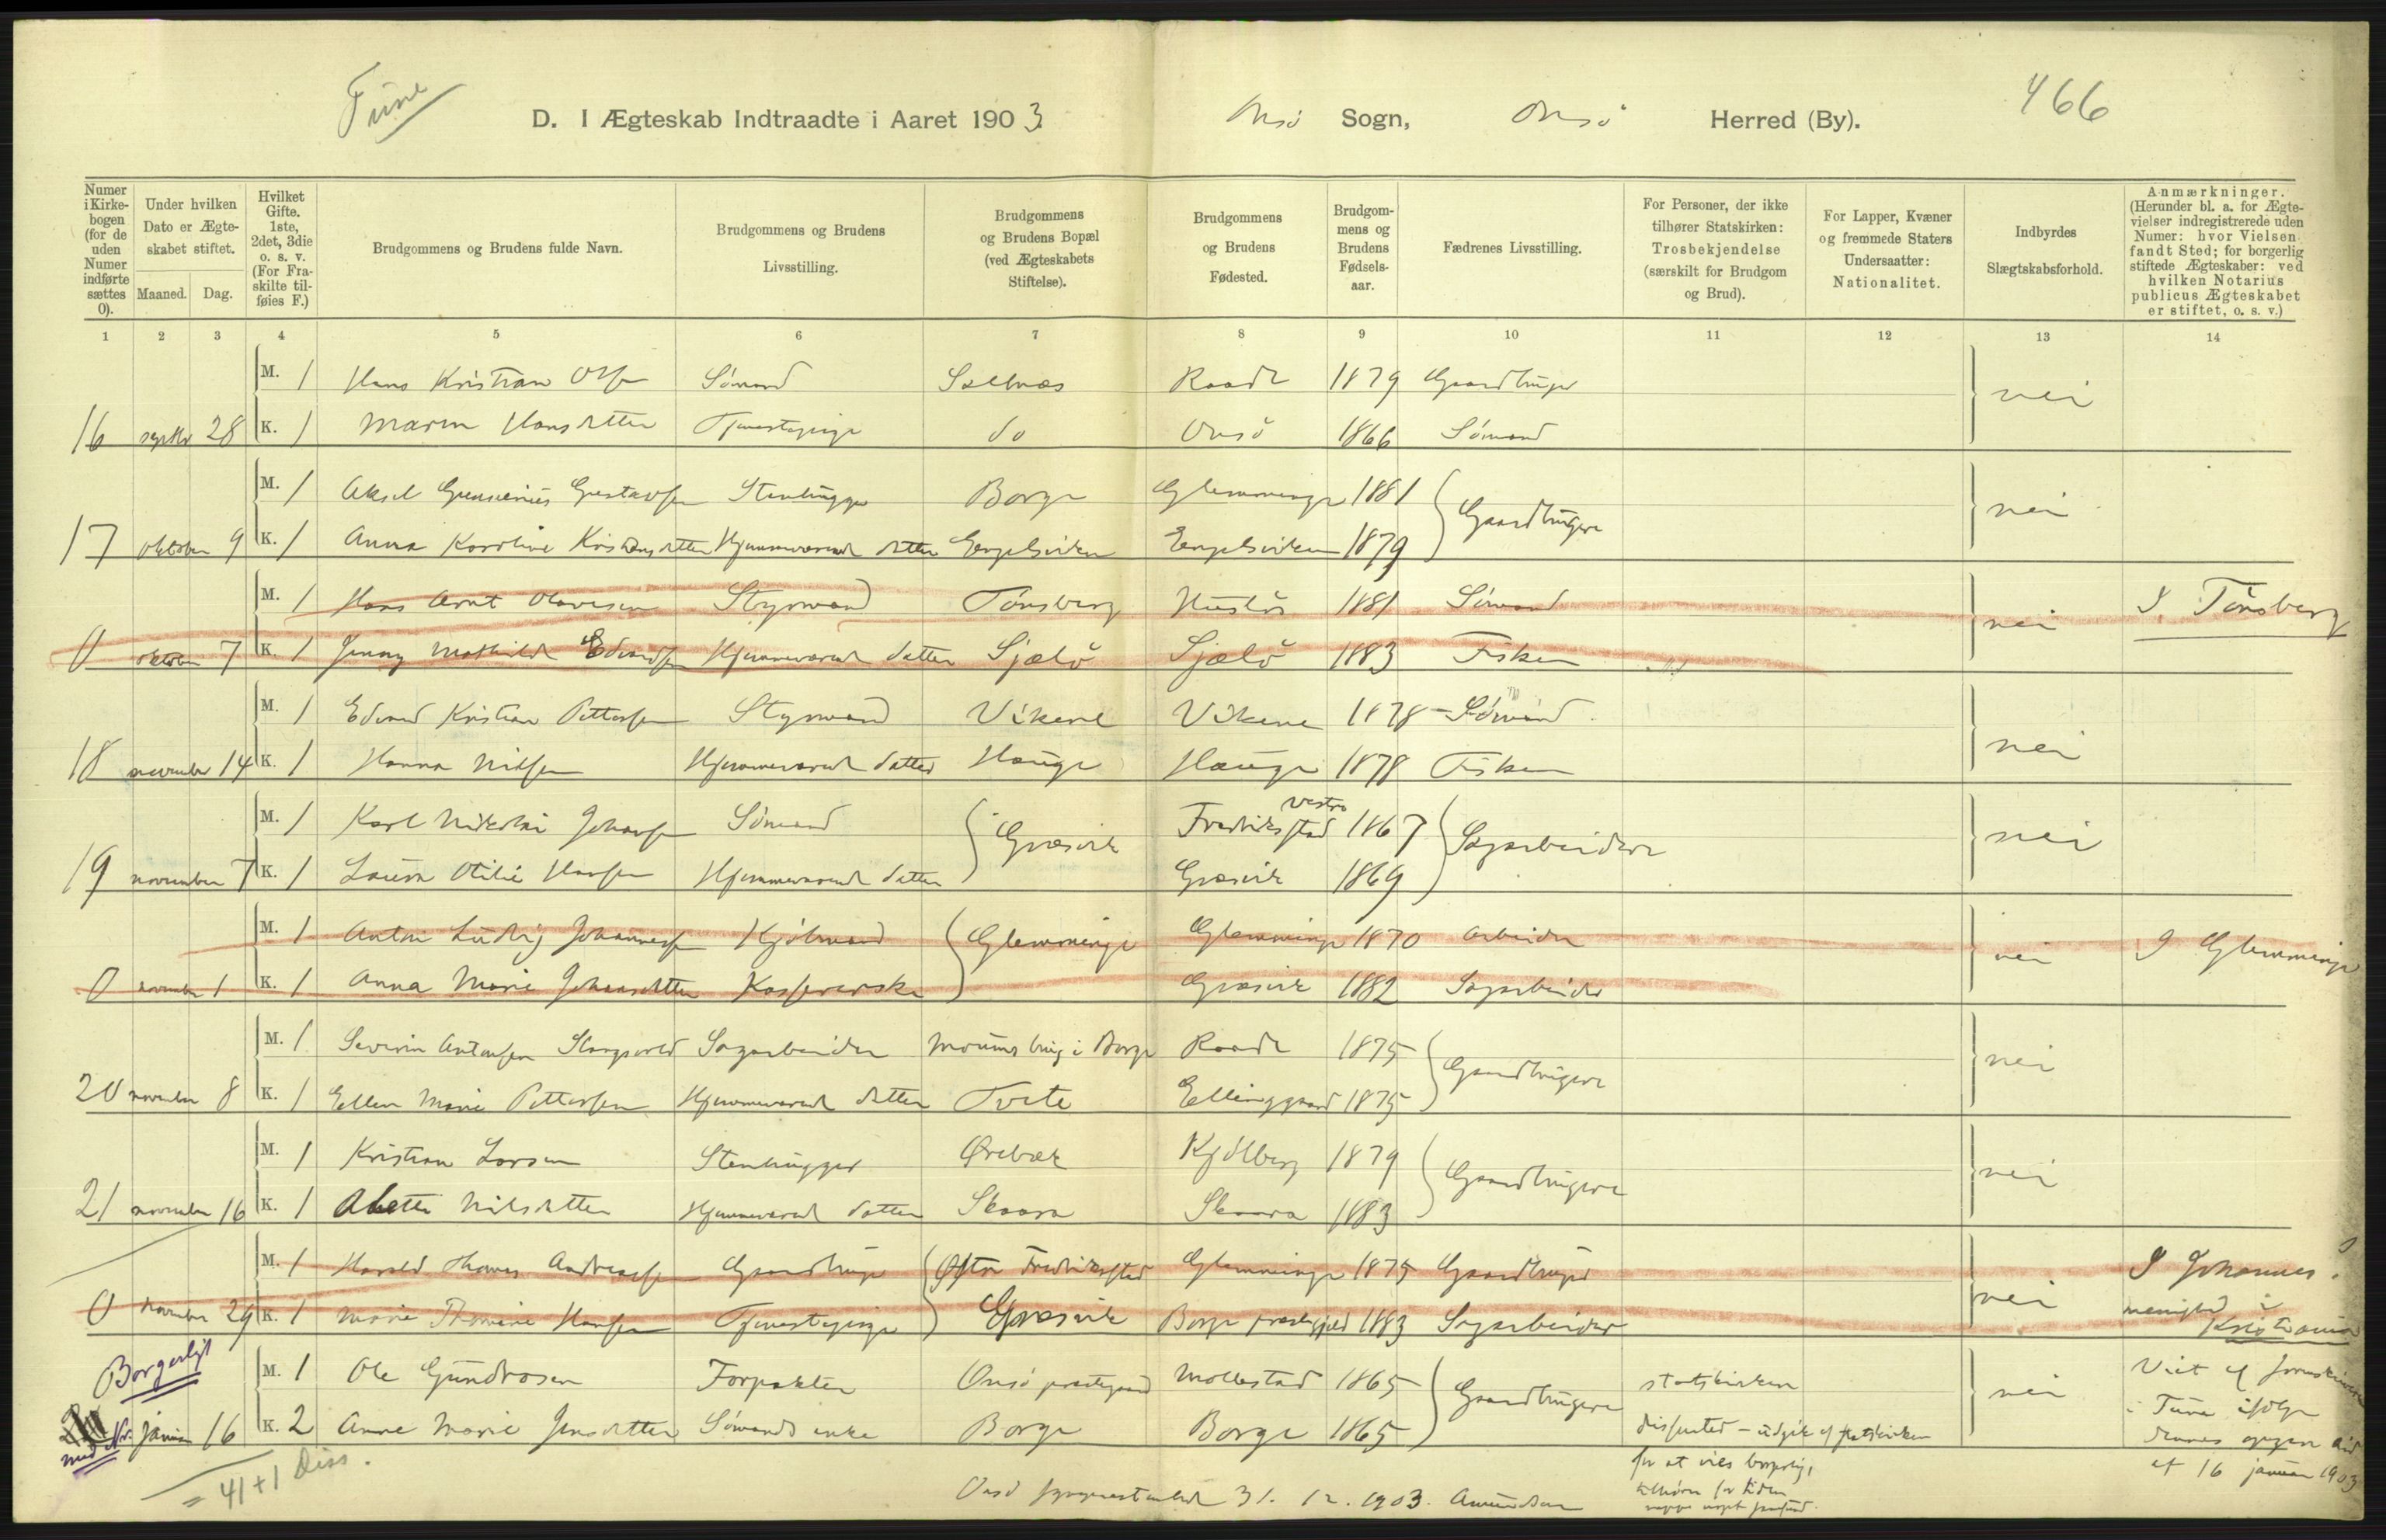 Tune
D. I Ægteskab Indtraadte i Aaret 1903. Onsö Sogn, Onsö Herred (By).
466
Numer i Kirkebogen (for de uden Numer indførte sættes 0).
Under hvilken Dato er Ægteskabet stiftet.
Maaned. Dag.
Hvilket Gifte. 1ste, 2det, 3die o. s. v. (For Fraskilte tilføies F.)
Brudgommens og Brudens fulde Navn.
Brudgommens og Brudens Livsstilling.
Brudgommens og Brudens Bopæl (ved Ægteskabets Stiftelse).
Brudgommens og Brudens Fødested.
Brudgommens og Brudens Fødselsaar.
Fædrenes Livsstilling.
For Personer, der ikke tilhører Statskirken: Trosbekjendelse (særskilt for Brudgom og Brud).
For Lapper, Kvæner og fremmede Staters Undersaatter: Nationalitet.
Indbyrdes Slægtskabsforhold.
Anmærkninger. (Herunder bl. a. for Ægtevielser indregistrerede uden Numer: hvor Vielsen fandt Sted; for borgerlig stiftede Ægteskaber: ved hvilken Notarius publicus Ægteskabet er stiftet, o. s. v.)
1 2 3 4 5 6 7 8 9 10 11 12 13 14
M. 1 Hans Kristian Olsen Sömand Saltnæs Raade 1879 Gaardbruger nei
16 septbr 28 K. 1 Maren Hansdatter Tjenestepige do Onsö 1866 Sömand
M. 1 Aksel Gustavsen Stenhugger Borge Glemminge 1881 Gaardbrugere nei
17 oktober 9 K. 1 Anna Karoline Kristensdatter Hjemmeværende datter Engelsviken Engelsviken 1879
M. 1 Hans Arnt Olavesen Styrmand Tönsberg 1881 Sömand nei I Tönsberg
0 oktober 7 K. 1 Jenny Mathilde Edvardsen Hjemmeværende datter Sjælö Sjælö 1883 Fisker
M. 1 Edvard Kristian Pettersen Styrmand Vikene Vikene 1878 Sömand nei
18 november 14 K. 1 Hanna Nilsen Hjemmeværende datter Hauge Hauge 1878 Fisker
M. 1 Karl Nikolai Johansen Sömand Græsvik vestre Fredriksstad 1867 Sagarbeidere nei
19 november 7 K. 1 Laura Otilie Hansen Hjemmeværende datter Græsvik 1869
M. 1 Anton Ludvig Johannessen Kjölmand Glemminge Glemminge 1870 Arbeider nei I Glemminge
0 november 1 K. 1 Anna Marie Johansdatter Græsvik 1882 Sagarbeider
M. 1 Severin Antonsen Skogsvold Sagarbeider i Borge Raade 1875 Gaardbrugere nei
20 november 8 K. 1 Ellen Marie Pettersen Hjemmeværende datter Tvete Ellinggaard 1875
M. 1 Kristian Larsen Stenhugger Ørebæk Kjölberg 1879 Gaardbrugere nei
21 november 16 K. 1 Nilsdatter Hjemmeværende datter Skaara Skaara 1883
M. 1 Harald Thomas Andreassen Gaardbruger Østre Fredriksstad Glemminge 1875 Gaardbruger nei I Johannes
0 november 29 K. 1 Marie Thomine Hansen Tjenestepige Græsvik Borge præstegjeld 1883 Sagarbeider menighed i
Kristiania
Borgerligt
M. 1 Ole Gundrosen Forpakter Onsö prestegaard Mollestad 1865 Gaardbrugere statskirken nei Viet af sorenskriveren
med Nr. januar 16 K. 2 Anne Marie Jensdatter Sömands enke Borge Borge 1865 dissenter – udgik af statskirken i Tune ifölge
for at vies borgerlig, dennes opgave
tilhörer for tiden af 16 januar 1903
= 41 + 1 Diss.
Onsö 31.12.1903. Amundsen